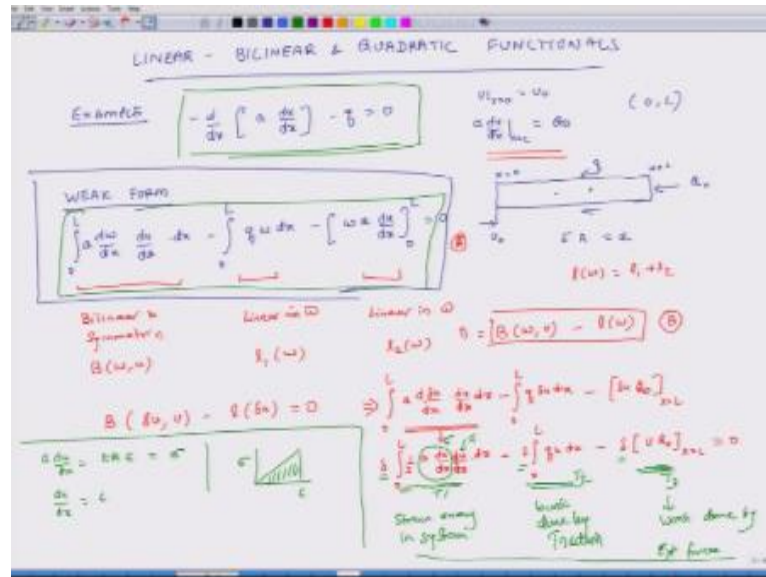 LINEAR - BILINEAR & QUADRATIC FUNCTIONALS
Example
- d/dx [ a du/dx ] - q = 0
u|x=0 = u0
(0, L)
a du/dx |x=L = Q0
x=0
x=L
Q0
u0
EA = a
WEAK FORM
∫0^L a dw/dx du/dx dx - ∫0^L q w dx - [ w a du/dx ]0^L = 0
A
l(w) = l1 + l2
Bilinear &
Symmetric
B(w,u)
Linear in w
l1(w)
Linear in w
l2(w)
0 = B(w,u) - l(w)
B
B(δu, u) - l(δu) = 0
⇒ ∫0^L a dδu/dx du/dx dx - ∫0^L q δu dx - [δu Q0]x=L
δ ∫0^L 1/2 a du/dx du/dx dx - δ ∫0^L qu dx - δ [u Q0]x=L = 0
σ
ε
T1
T2
T3
a du/dx = EAε = σ
du/dx = ε
σ
ε
Strain energy
in system
Work
done by
Traction
Work done by
Ext force